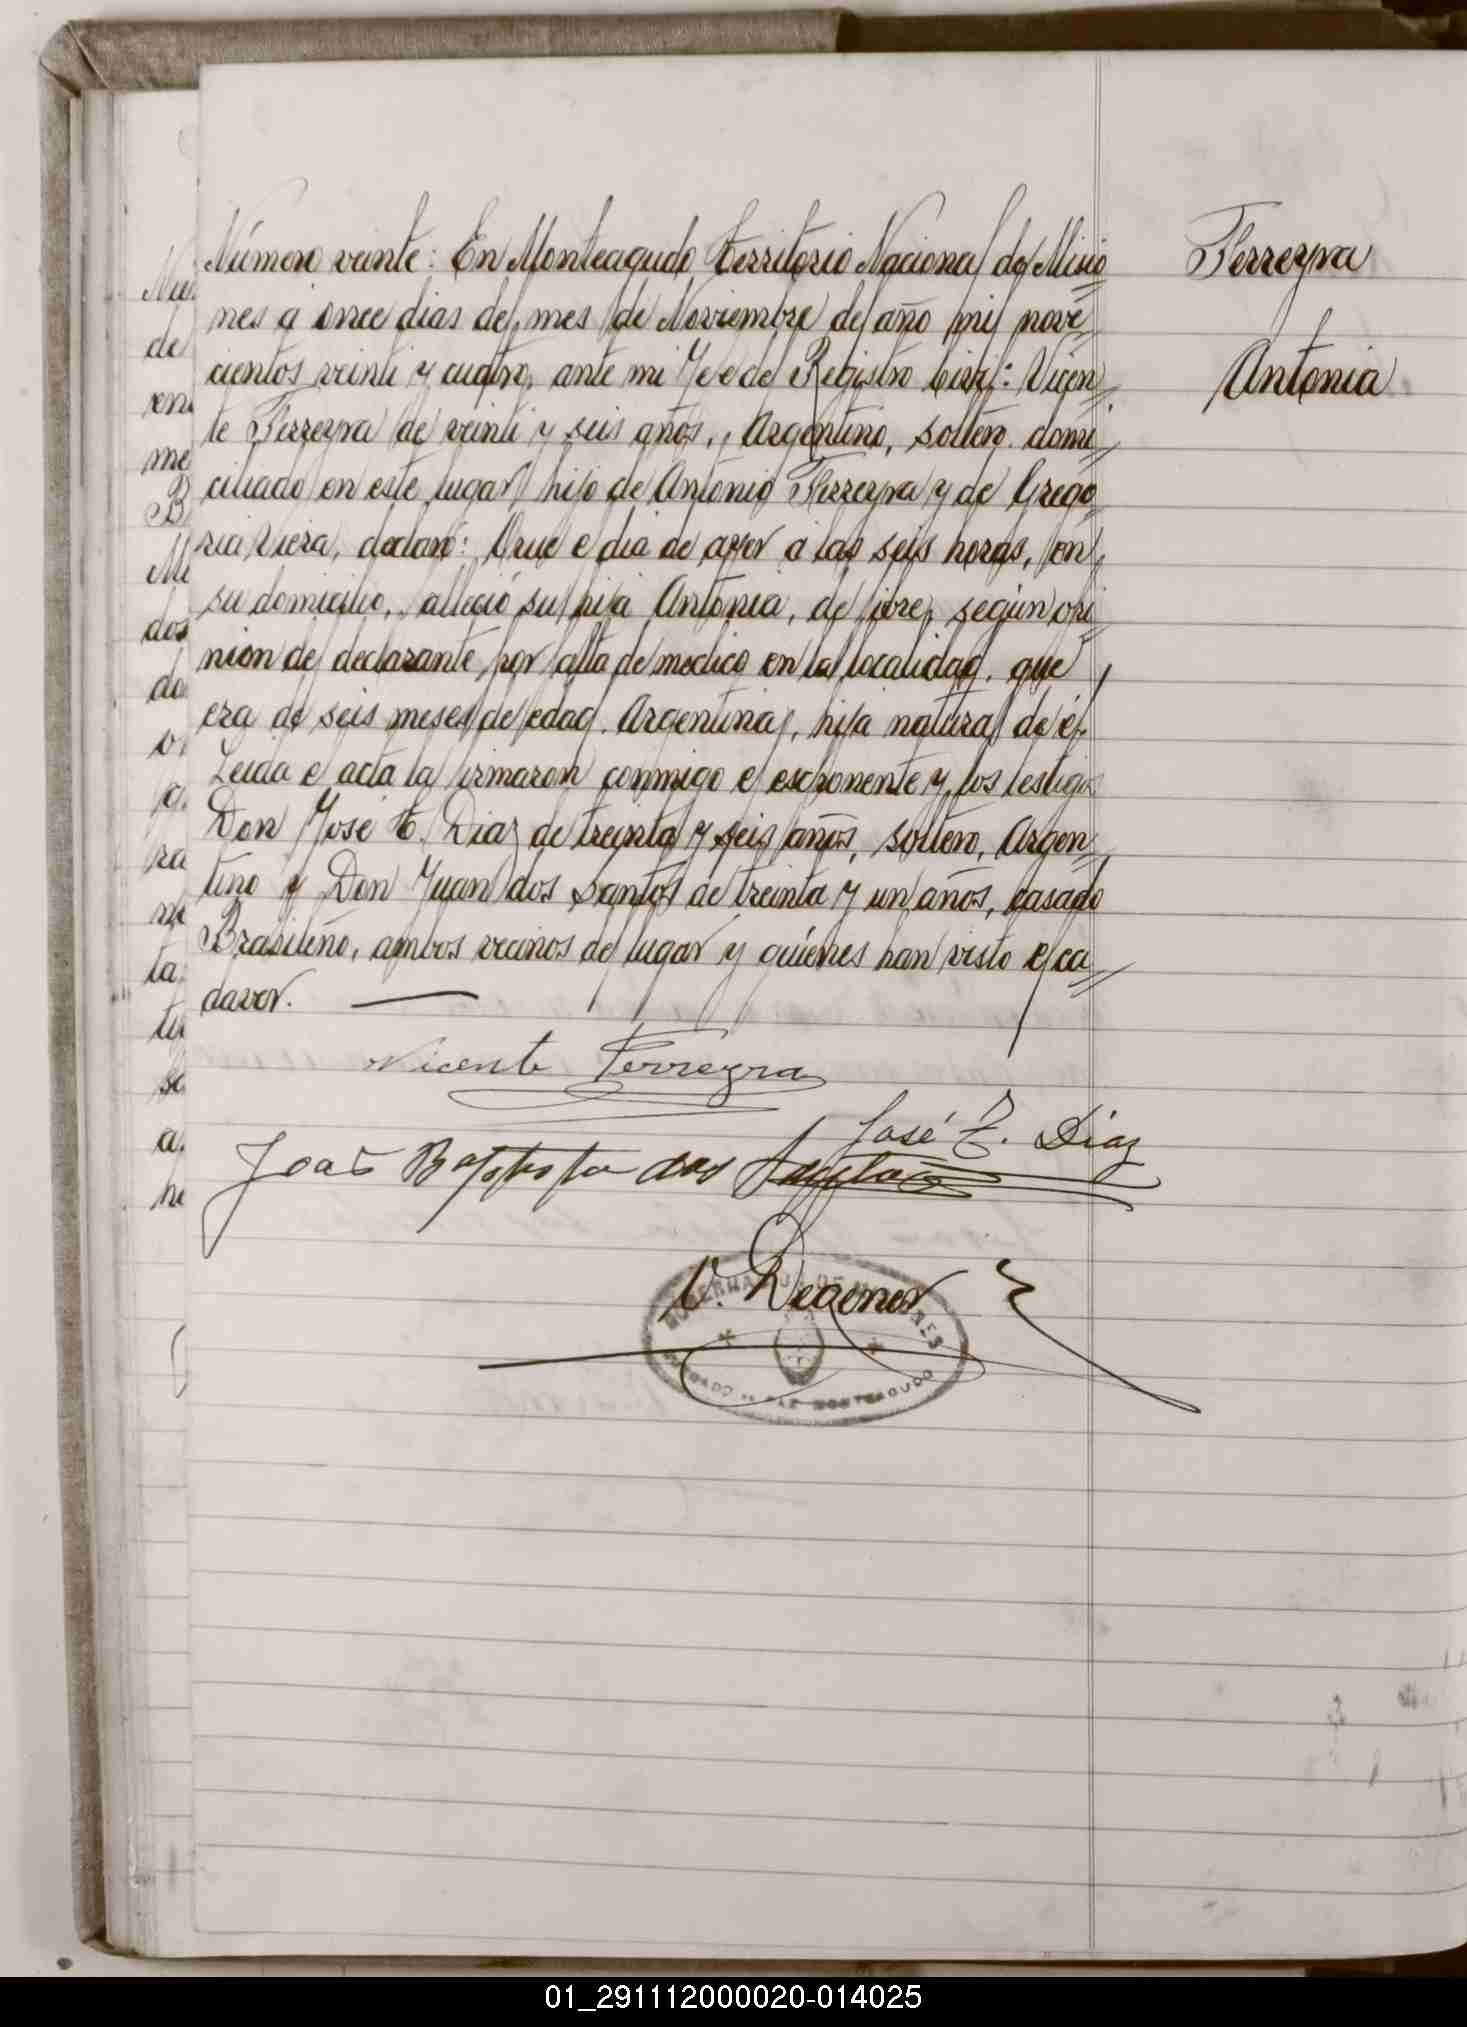 Número veinte: En Monteagudo, Territorio Nacional de Misio
nes a once dias del mes de Noviembre del año mil nove
cientos veinti y cuatro, ante mi Jefe del Registro Civil: Vicen
te Ferreyra de veinti y seis años, Argentino, soltero, domi
ciliado en este lugar, hijo de Antonio Ferreyra y de Grego
ria Viera, declaró: Que el dia de ayer a las seis horas, en
su domicilio, falleció su hija Antonia, de fiebre, según opi
nion del declarante, por falta de medico en la localidad, que
era de seis meses de edad, Argentina, hija natural de él.
Leida el acta la firmaron conmigo el exponente y los testigos
Don José E. Diaz de treinta y seis años, soltero, Argen
tino y Don Juan dos Santos de treinta y un años, casado
Brasileño, ambos vecinos del lugar y quiénes han visto el ca
daver.
Ferreyra
Antonia
Vicente Ferreyra
José E. Diaz
Joaô Baptista dos Santos
V.
GOBERNACION DE MISIONES
JUZGADO DE PAZ MONTEAGUDO
Nu
de
me
dos
do
ra
ta
tu
01_291112000020-014025